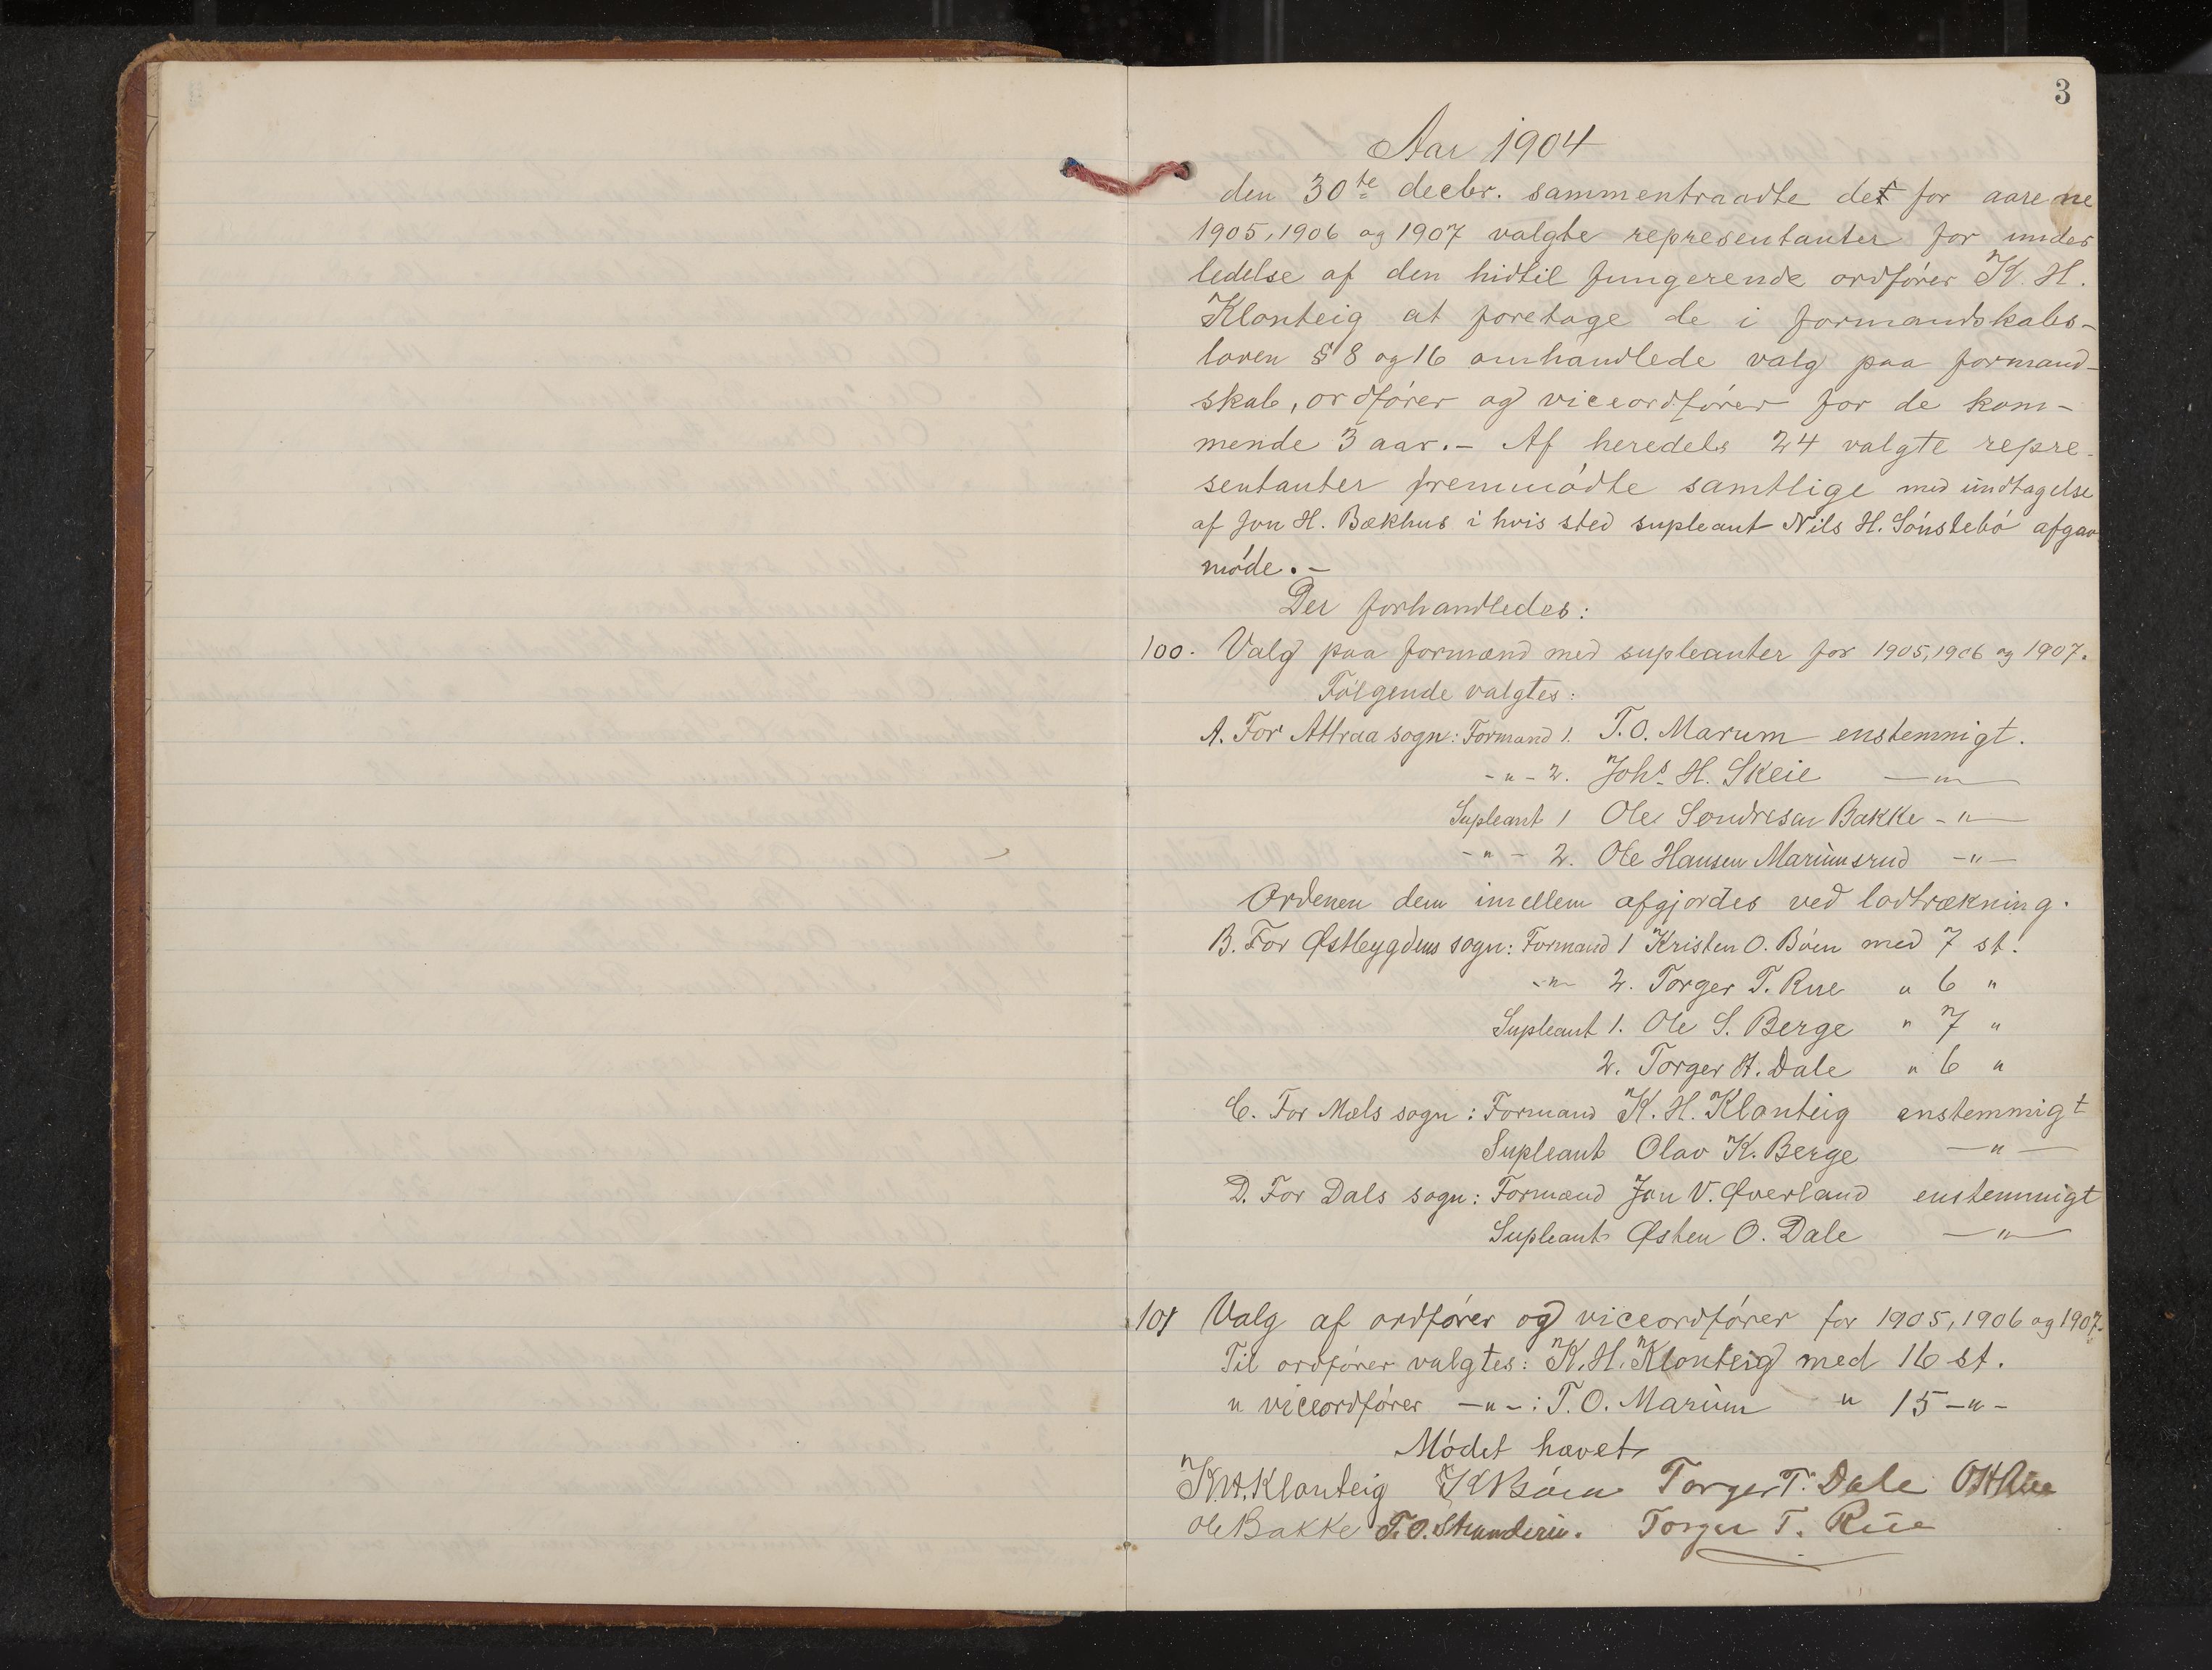 3
Aar 1904
den 30te decbr. sammentraadte det for aarene
1905, 1906 og 1907 valgte representanter for under
ledelse af den hidtil fungerende ordfører K. H.
Klonteig at foretage de i formandskabs-
loven § 8 og 16 omhandlede valg paa formand-
skab, ordfører og viceordfører for de kom-
mende 3 aar. - Af heredets 24 valgte repre-
sentanter fremmødte samtlige med undtagelse
af Jon H. Bækhus i hvis sted supleant Nils H. Sønstebø afgav
møde. -
Der forhandledes:
100. Valg paa formænd med supleanter for 1905, 1906 og 1907.
Følgende valgtes:
A. For Attraa sogn: Formand 1. T. O. Marum enstemmigt.
- " - 2. Johs. H. Skeie - " -
Supleant 1 Ole Sondresen Bakke - " -
- " - 2. Ole Hansen Marumsrud - " -
Ordenen dem imellem afgjordes ved lodtrækning.
B. For Østbygdens sogn: Formand 1 Kristen O. Bøen med 7 st.
- " - 2. Torger T. Rue " 6 "
Supleant 1. Ole S. Berge " 7 "
2. Torger H. Dale " 6 "
C. For Mæls sogn: Formand K. H. Klonteig enstemmigt
Supleant Olav K. Berge - " -
D. For Dals sogn: Formænd Jon V. Øverland enstemmigt
Supleant Østen O. Dale - " -
101 Valg af ordfører og viceordfører for 1905, 1906 og 1907.
Til ordfører valgtes: K. H. Klonteig med 16 st.
" viceordfører - " - : T. O. Marum " 15 - " -
Mødet hævet
K. H. Klonteig K Bøen Torger T. Dale O H Rue
Ole Bakke T. O. Torger T. Rue